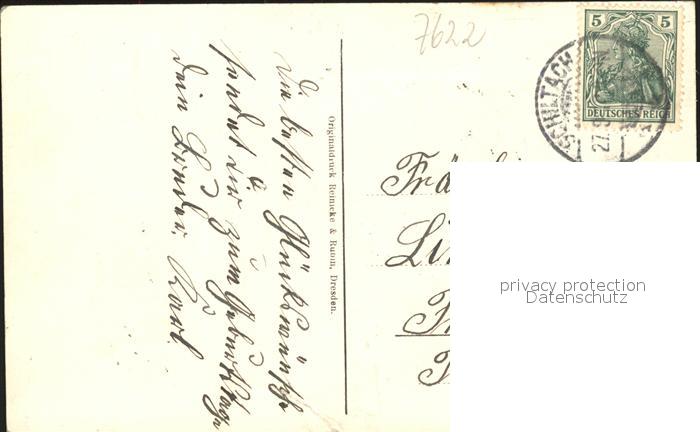 7622
5 5
DEUTSCHES REICH
SCHILTACH
27.
Originaldruck Reinicke & Rubin, Dresden.
Die besten Glückwünsche
sendet dir zum Geburtstage
dein Bruder Karl
Frä
Li
privacy protection
Datenschutz